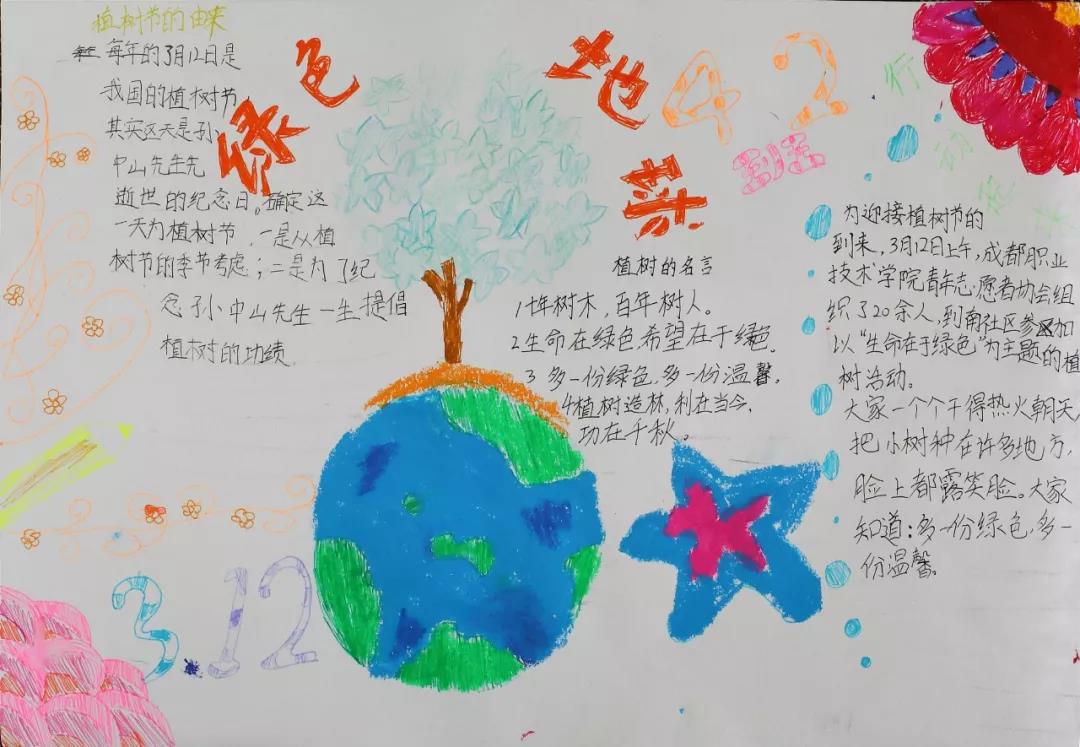 植树节的由来
每年的3月12日是
我国的植树节,
其实这天是孙
中山先生先
逝世的纪念日。确定这
一天为植树节,一是从植
树节的季节考虑；二是为了纪
念孙中山先生一生提倡
植树的功绩.
绿色
地球
4 2
到来
行动
植树的名言
1十年树木，百年树人。
2生命在绿色,希望在于绿色.
3 多一份绿色,多一份温馨.
4植树造林,利在当今,
功在千秋。
为迎接植树节的
到来,3月12日上午,成都职业
技术学院青年志愿者协会组
织了20余人,到南社区参加
以“生命在于绿色”为主题的植
树活动。
大家一个个干得热火朝天,
把小树种在许多地方,
脸上都露笑脸。大家
知道:多一份绿色,多一
份温馨。
3.12